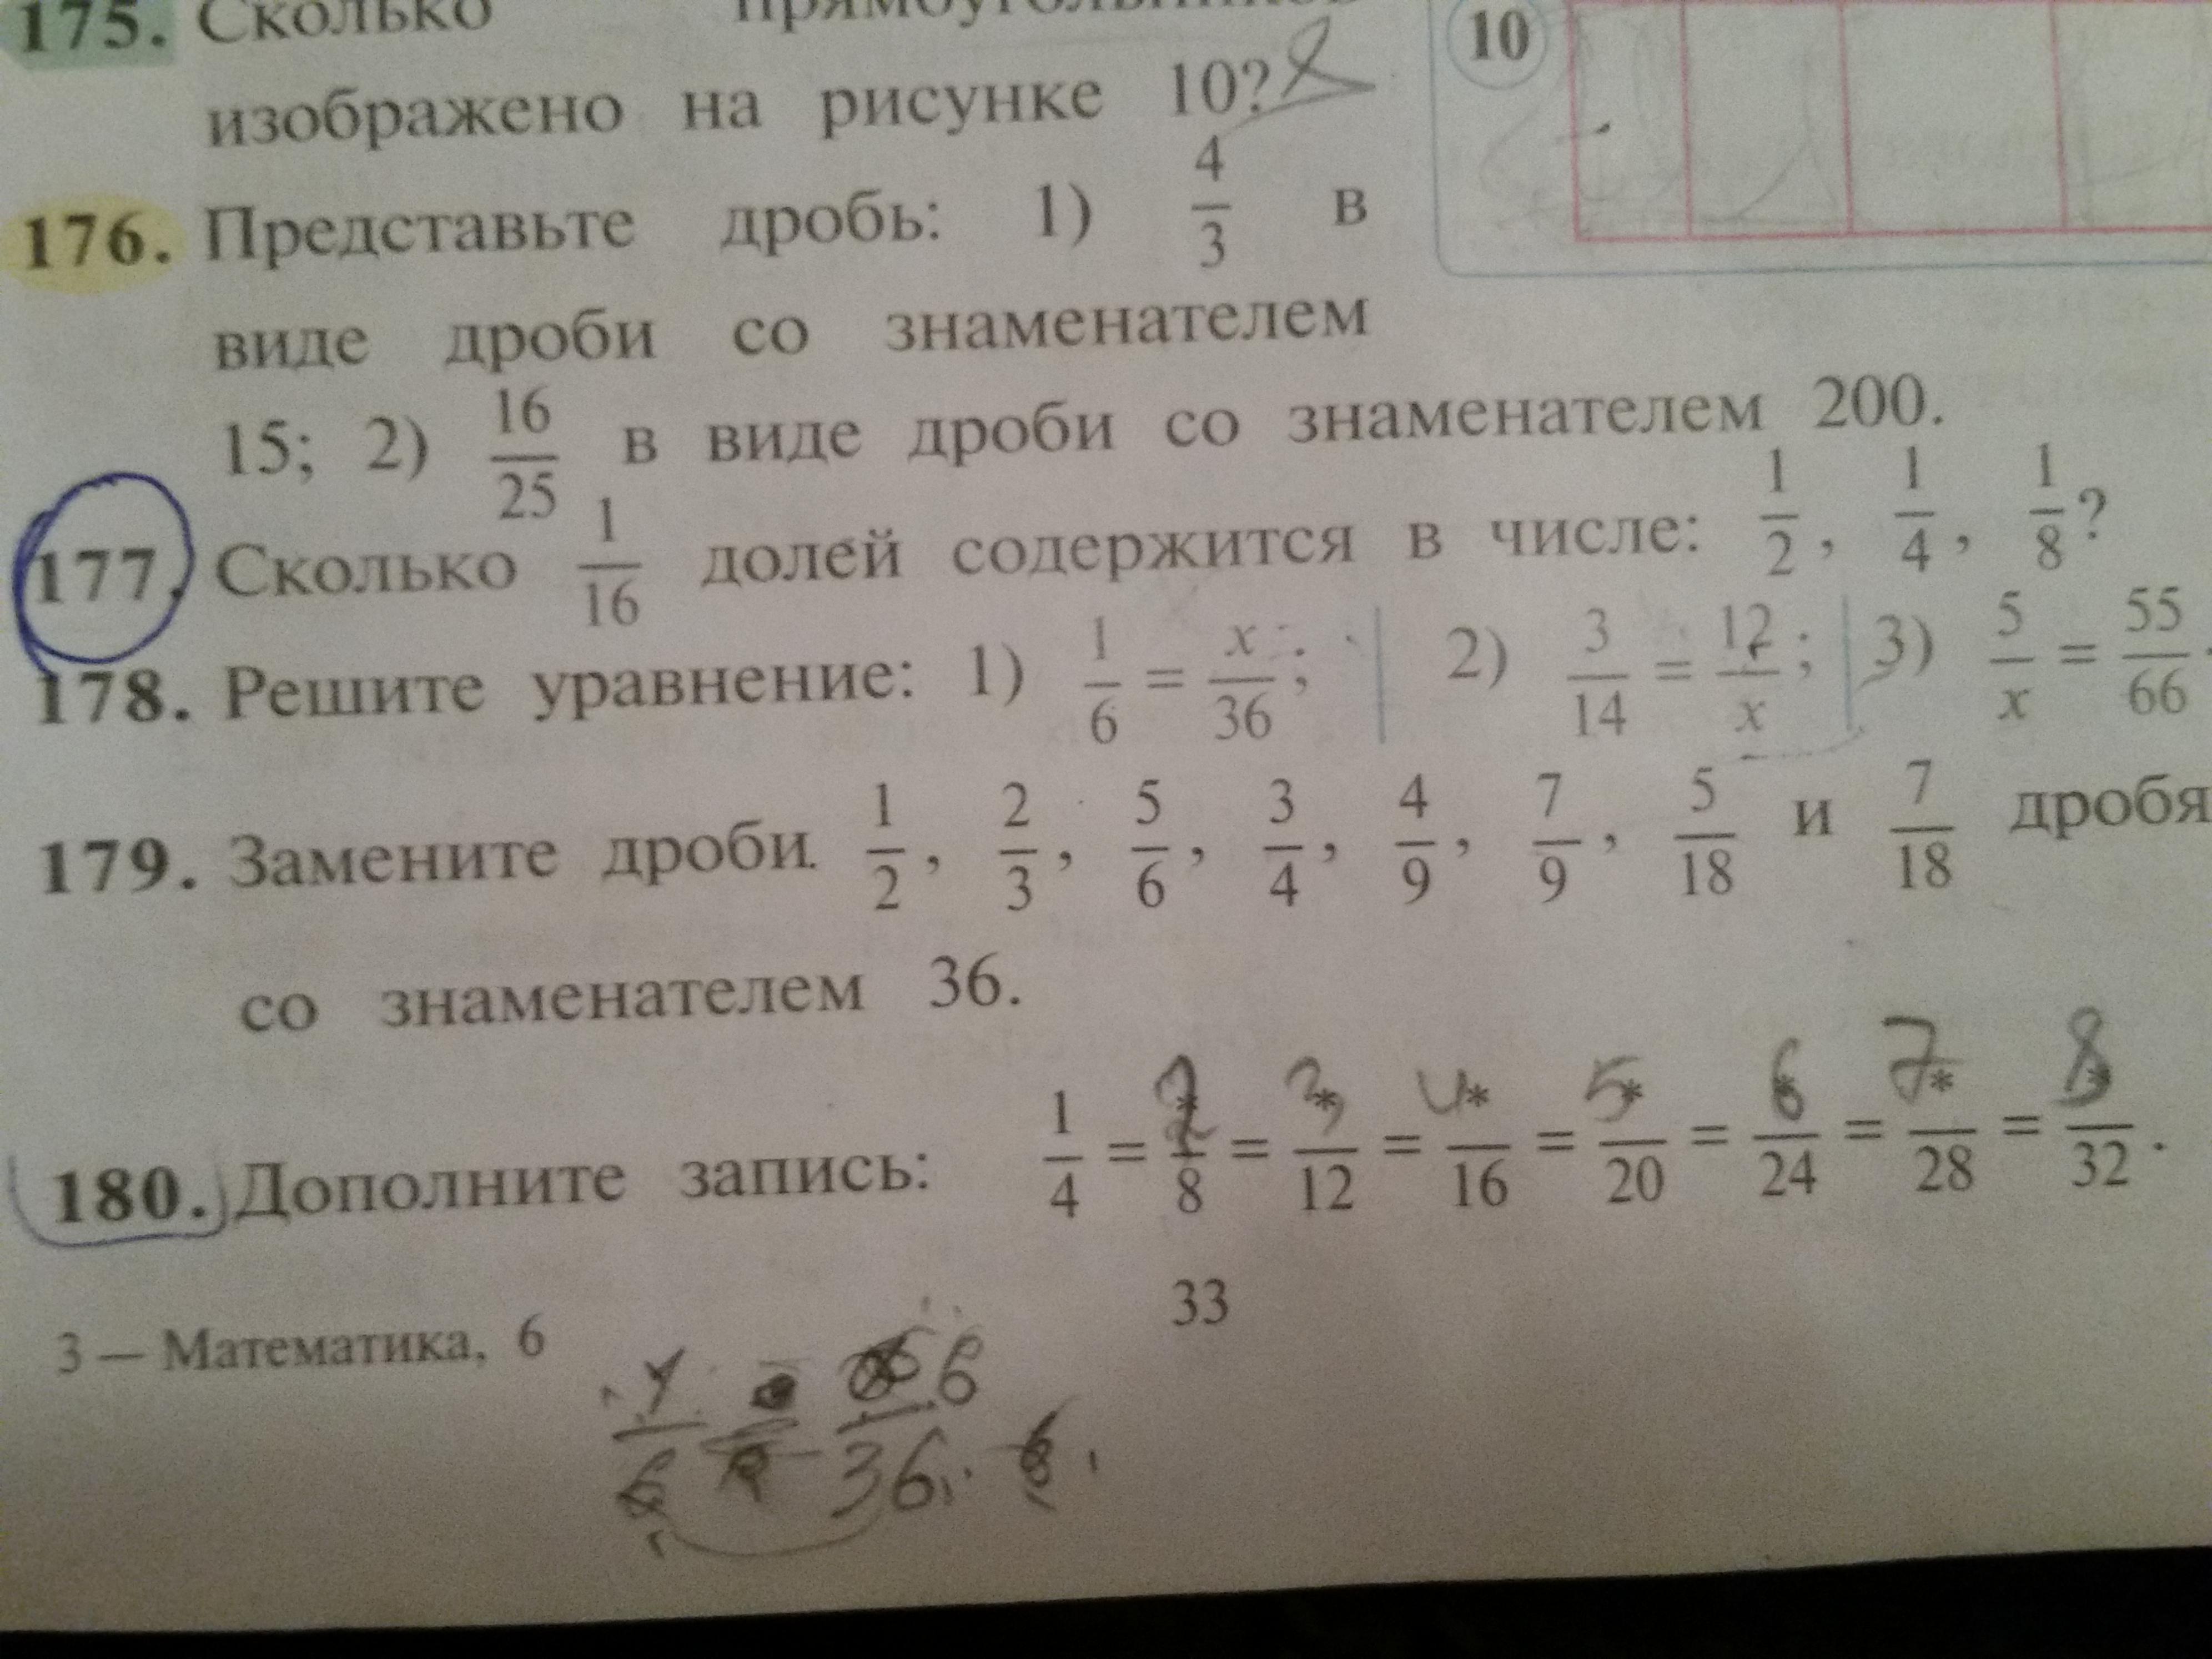 175. Сколько прямоугольников
10
изображено на рисунке 10? 8
176. Представьте дробь: 1) 4/3 в
виде дроби со знаменателем
15; 2) 16/25 в виде дроби со знаменателем 200.
177. Сколько 1/16 долей содержится в числе: 1/2, 1/4, 1/8?
178. Решите уравнение: 1) 1/6 = x/36; 2) 3/14 = 12/x; 3) 5/x = 55/66.
179. Замените дроби 1/2, 2/3, 5/6, 3/4, 4/9, 7/9, 5/18 и 7/18 дробя
со знаменателем 36.
2 3 4 5 6 7 8
180. Дополните запись: 1/4 = */8 = */12 = */16 = */20 = */24 = */28 = */32.
33
3 — Математика, 6
6
36